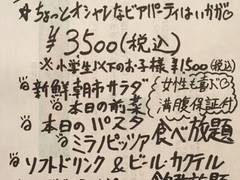 ☆ちょっとオシャレなビアパーティはいかが
¥3500(税込)
※小学生以下のお子様 ¥1500(税込)
新鮮朝市サラダ
本日の前菜
女性も喜ぶ♡
満腹保証付
本日のパスタ
ミラノピッツァ
食べ放題
ソフトドリンク&ビール・カクテル
飲み放題